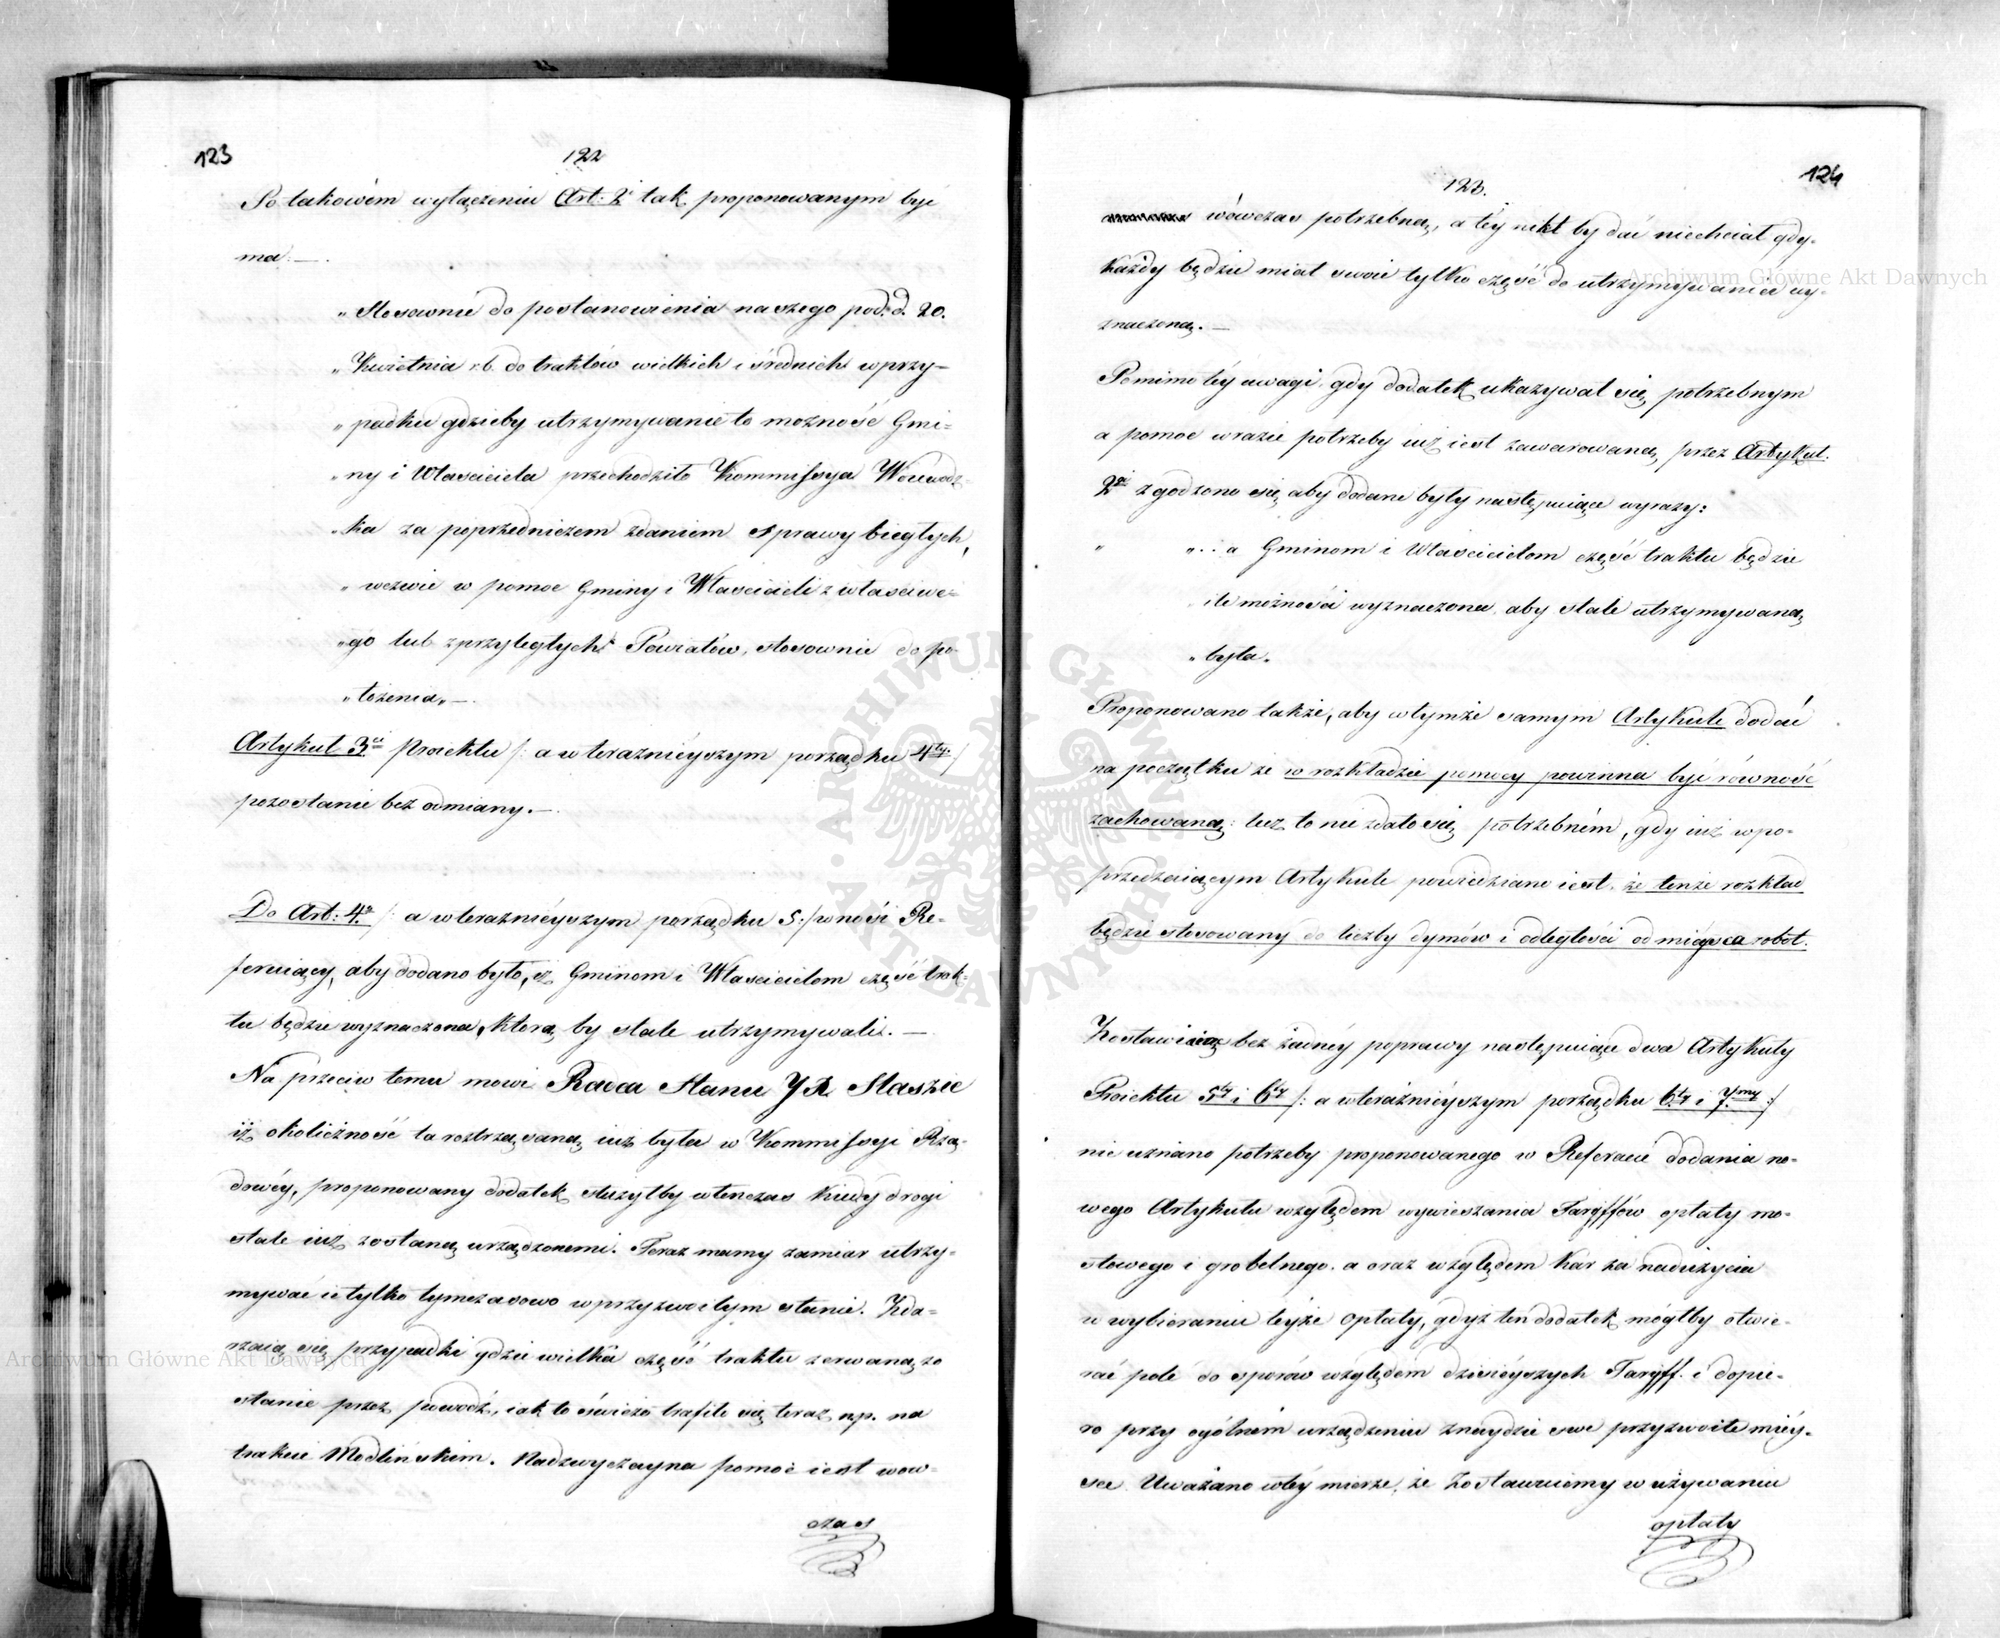 123
122
Po takowém wyłączeniu Art: 2i tak proponowanym być
ma. —
„ Stosownie do postanowienia naszego pod d. 20.
„ Kwietnia r. b. do traktów wielkich i średnich w przy-
„ padku gdzieby utrzymywanie to możność Gmi-
„ ny i Właściciela przechodziło Kommissya Woiewodz-
„ ka za poprzedniczem zdaniem sprawy biegłych,
„ wezwie w pomoc Gminy i Właścicieli z właściwe-
„ go lub z przyległych Powiatów, stosownie do po-
„ łożenia„ —
Artykuł 3ci Proiektu /: a w teraznieyszym porządku 4ty. :/
pozostanie bez odmiany. —
Do Art: 4o /: a w teraznieyszym porządku 5 :/ wnosi Re-
feruiący, aby dodano było, iż Gminom i Właścicielom część trak-
tu będzie wyznaczona, którą by stale utrzymywali. —
Na przeciw temu mowi Radca Stanu JX Staszic
iż okoliczność ta roztrząsaną iuż była w Kommissyi Rzą-
dowéy, proponowany dodatek służyłby wtenczas kiedy drogi
stale iuż zostaną urządzonemi. Teraz mamy zamiar utrzy-
mywać ie tylko tymczasowo w przyzwoitym stanie. Zda-
rzaią się przypadki gdzie wielka część traktu zerwaną zo
stanie przez powodź, iak to świeżo trafiło się teraz np. na
trakcie Modlińskim. Nadzwyczayna pomoc iest wow-
czas
124
123.
wówczas potrzebną, a téy nikt by dać niechciał gdy-
każdy będzie miał swoie tylko część do utrzymywania wy-
znaczoną. —
Pomimo téy uwagi, gdy dodatek ukazywał się potrzebnym
a pomoc w razie potrzeby iuż iest zawarowaną, przez Artykuł.
2gi zgodzono się aby dodane były następuiące wyrazy:
„ „ .. a Gminom i Właścicielom część traktu będzie
ile możności wyznaczona, aby stale utrzymywaną
„ była.
Proponowano także, aby w tymże samym Artykule dodać
na początku że w rozkładzie pomocy powinna być równość
zachowaną: lecz to nie zdało się potrzebném, gdy iuż w po-
przedzaiącym Artykule powiedziano iest, że tenże rozkład
będzie stosowany do liczby dymów i odległości od mieysca robot.
Zostawiaiąc bez żadnéy poprawy następuiące dwa Artykuły
Proiektu 5ty i 6ty /: a w teraźnieyszym porządku 6ty i 7my :/
nie uznano potrzeby proponowanego w Referacie dodania no-
wego Artykułu względem wywieszania Taryffów opłaty mo-
stowego i grobelnego. a oraz względem kar za nadużycia
w wybieraniu téyże opłaty, gdyż ten dodatek mógłby otwie-
rać pole do sporów względem dzisieyszych Taryff. i dopie-
ro przy ogólném urządzeniu znaydzie swe przyzwoite miéy-
sce. Uważano w téy mierze, że zostawuiemy w używaniu
opłaty
Archiwum Główne Akt Dawnych
Archiwum Główne Akt Dawnych
ARCHIWUM GŁÓWNE AKT DAWNYCH